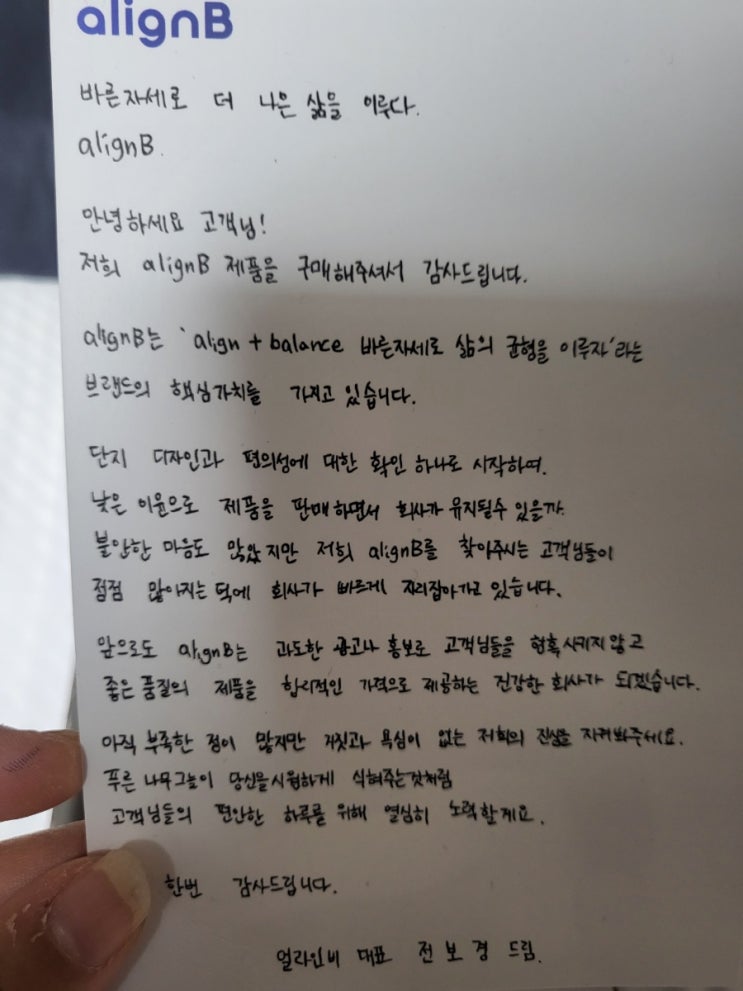 alignB
바른자세로 더 나은 삶을 이루다.
alignB.
안녕하세요 고객님!
저희 alignB 제품을 구매해주셔서 감사드립니다.
alignB는 'align + balance 바른자세로 삶의 균형을 이루자'라는
브랜드의 핵심가치를 가지고 있습니다.
단지 디자인과 편의성에 대한 확인 하나로 시작하여,
낮은 이윤으로 제품을 판매하면서 회사가 유지될수 있을까
불안한 마음도 많았지만 저희 alignB를 찾아주시는 고객님들이
점점 많아지는 덕에 회사가 빠르게 자리잡아가고 있습니다.
앞으로도 alignB는 과도한 광고나 홍보로 고객님들을 현혹시키지 않고
좋은 품질의 제품을 합리적인 가격으로 제공하는 건강한 회사가 되겠습니다.
아직 부족한 점이 많지만 거짓과 욕심이 없는 저희의 진심을 지켜봐주세요.
푸른 나무그늘이 당신을 시원하게 식혀주는것처럼
고객님들의 편안한 하루를 위해 열심히 노력할게요.
한번 감사드립니다.
얼라인비 대표 전보경 드림.